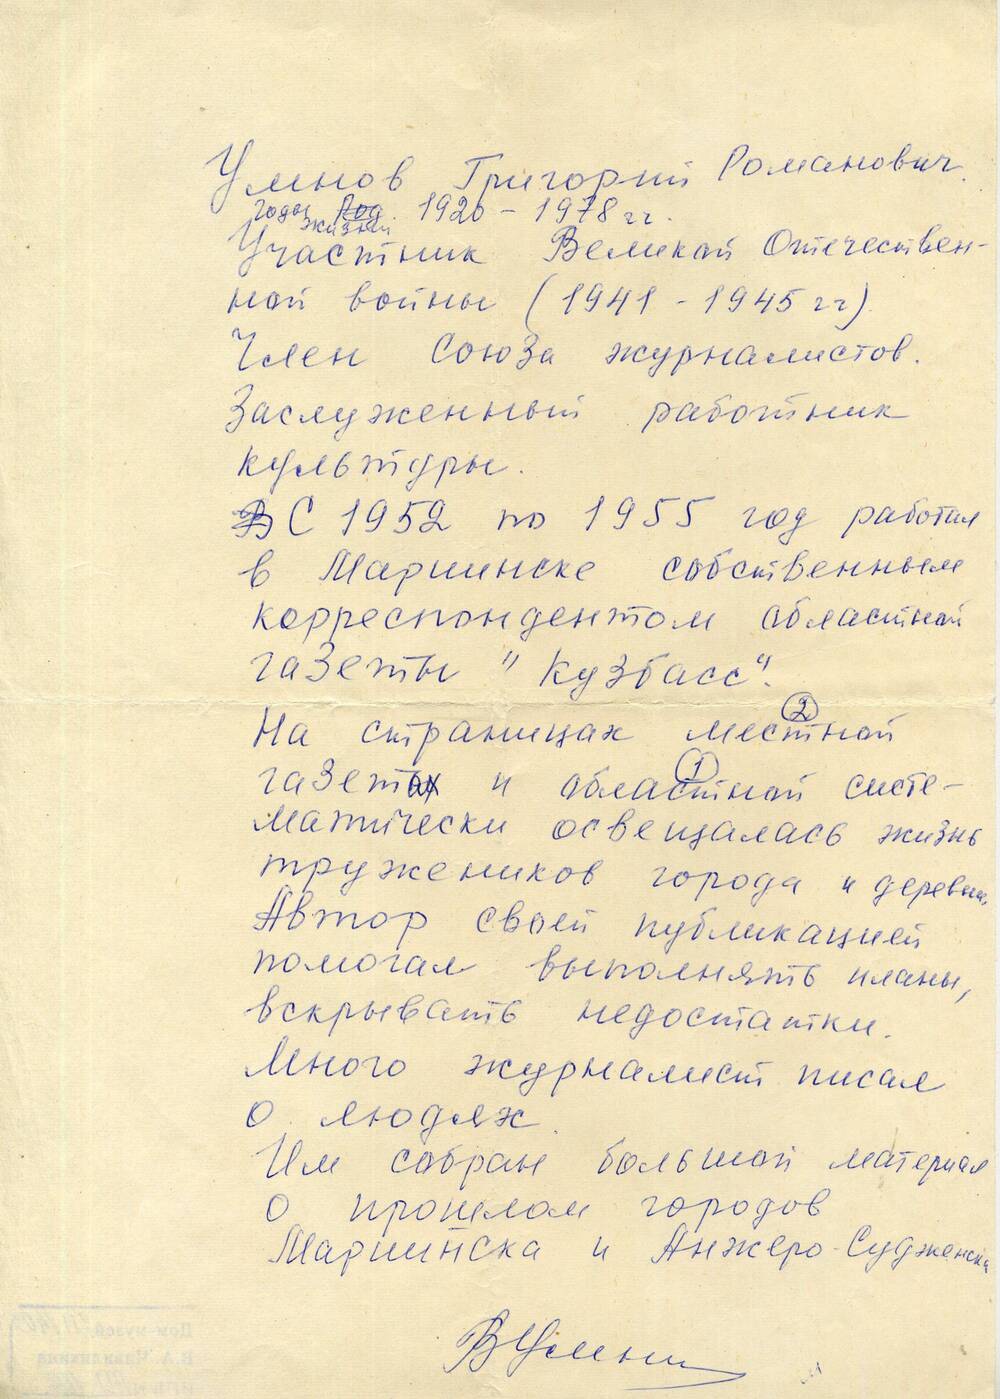 Умнов Григорий Романович.
годы жизни Год. 1920 - 1978 гг.
Участник Великой Отечествен-
ной войны (1941 - 1945 гг).
Член Союза журналистов.
Заслуженный работник
культуры.
В С 1952 по 1955 год работал
в Мариинске собственным
корреспондентом областной
газеты "Кузбасс".
На страницах местной (2)
газеты и областной (1) систе-
матически освещалась жизнь
тружеников города и деревни.
Автор своей публикацией
помогал выполнять планы,
вскрывать недостатки.
Много журналист писал
о людях.
Им собран большой материал
о прошлом городов
Мариинска и Анжеро-Судженска
Дом-музей
В.А. Чивилихина